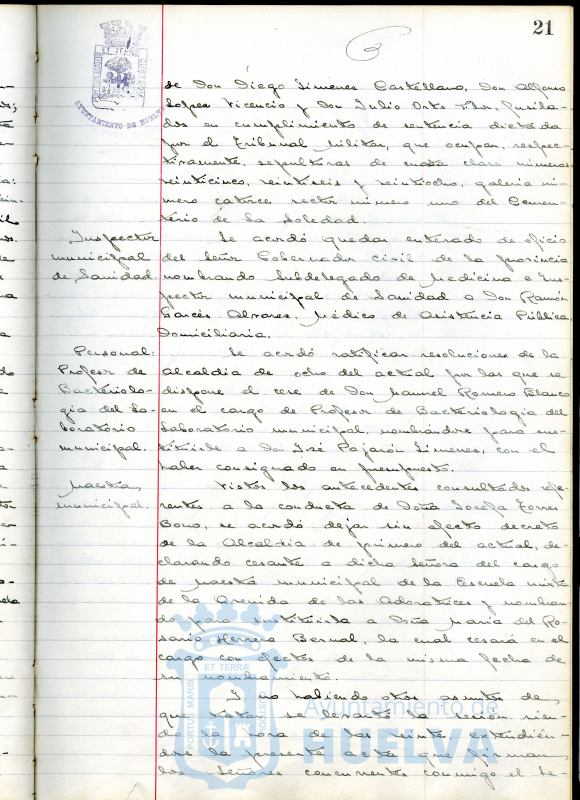 21
AYUNTAMIENTO DE HUELVA
de Don Diego Jimenez Castellano, Don Alfonso
Lopez Vicencio y Don Julio Orts
dos en cumplimiento de sentencia dictada
por el Tribunal Militar, que ocupan, respec-
tivamente, sepulturas de clase numeros
veinticinco, veintiseis y veintiocho, galeria nú-
mero catorce sector número uno del Cemen-
terio de la Soledad.
Inspector
municipal
de Sanidad.
Se acordó quedar enterado de oficio
del Señor Gobernador Civil de la provincia
nombrando Subdelegado de Medicina e Ins-
pector municipal de Sanidad a Don Ramón
Garcés Alvarez, Médico de Asistencia Pública
Domiciliaria.
Personal:
Profesor de
Bacteriolo-
gia del La-
boratorio
municipal.
Se acordó ratificar resoluciones de la
Alcaldia de ocho del actual por las que se
dispone el cese de Don Manuel Romero Blanco
en el cargo de Profesor de Bacteriologia del
Laboratorio municipal, nombrándose para sus-
tituirle a Don José Pajarón Jimenez, con el
haber consignado en presupuesto.
Maestra
municipal.
Vistos los antecedentes consultados refe-
rentes a la conducta de Doña Josefa Torres
Bono, se acordó dejar sin efecto decreto
de la Alcaldia de primero del actual, de-
clarando cesante a dicha Señora del cargo
de Maestra municipal de la Escuela mixta
de la Avenida de las Adoratrices y nombran-
do para sustituirla a Doña Maria del Ro-
sario Herrera Bernal, la cual cesará en el
cargo con efectos de la misma fecha de
su nombramiento.
Y no habiendo otros asuntos de
que tratar se levantó la sesión sien-
do la hora de las veinte, extendién-
dose la presente acta que firman
los Señores concurrentes conmigo el Se-
PORTUS MARIS ET TERRÆ CUSTODIA
Ayuntamiento de
HUELVA